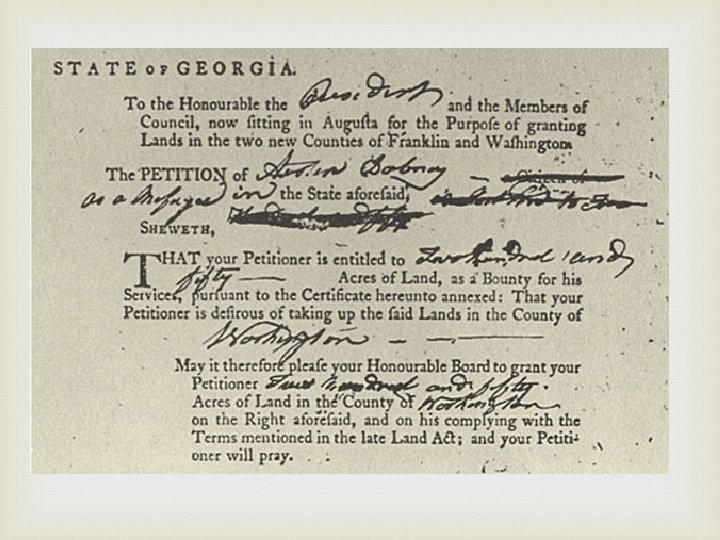 STATE OF GEORGIA.
To the Honourable the President and the Members of
Council, now ſitting in Auguſta for the Purpoſe of granting
Lands in the two new Counties of Franklin and Waſhington
The PETITION of Austin Dabney —
as a Refugee in the State aforeſaid,
SHEWETH,
THAT your Petitioner is entitled to Two Hundred and
fifty — Acres of Land, as a Bounty for his
Services, purſuant to the Certificate hereunto annexed: That your
Petitioner is deſirous of taking up the ſaid Lands in the County of
Washington — — —
May it therefore pleaſe your Honourable Board to grant your
Petitioner Two hundred and fifty.
Acres of Land in the County of Washington
on the Right aforeſaid, and on his complying with the
Terms mentioned in the late Land Act; and your Petiti-
oner will pray.